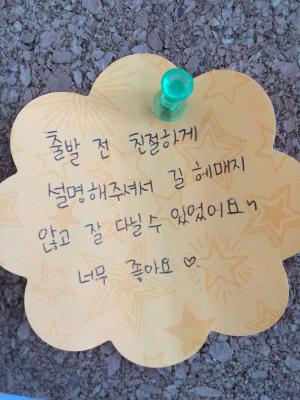 출발 전 친절하게
설명해주셔서 길 헤매지
않고 잘 다닐수 있었어요~
너무 좋아요♡